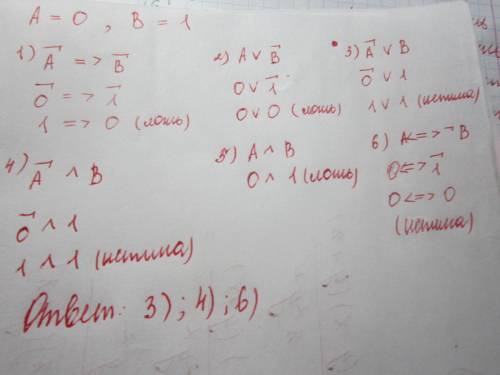 A = 0 , B = 1
1) A̅ => B̅
0̅ => 1̅
1 => 0 (ложь)
2) A ∨ B̅
0 ∨ 1̅
0 ∨ 0 (ложь)
3) A̅ ∨ B
0̅ ∨ 1
1 ∨ 1 (истина)
4) A̅ ∧ B
0̅ ∧ 1
1 ∧ 1 (истина)
5) A ∧ B
0 ∧ 1 (ложь)
6) A <=> ¬B
0 <=> 1̅
0 <=> 0
(истина)
Ответ: 3); 4); 6)